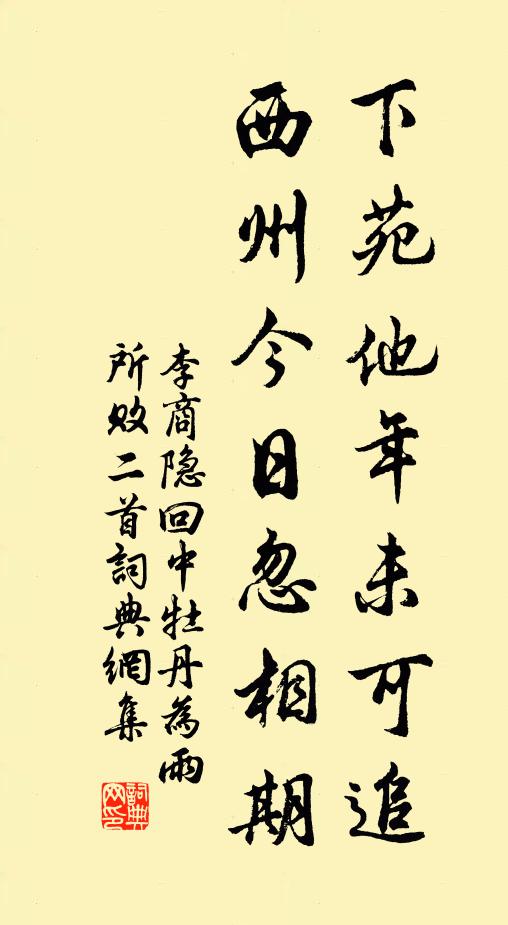 下苑他年未可追
西州今日忽相期
李商隐回中牡丹為雨
所敗二首詞典網集
詞典
网印